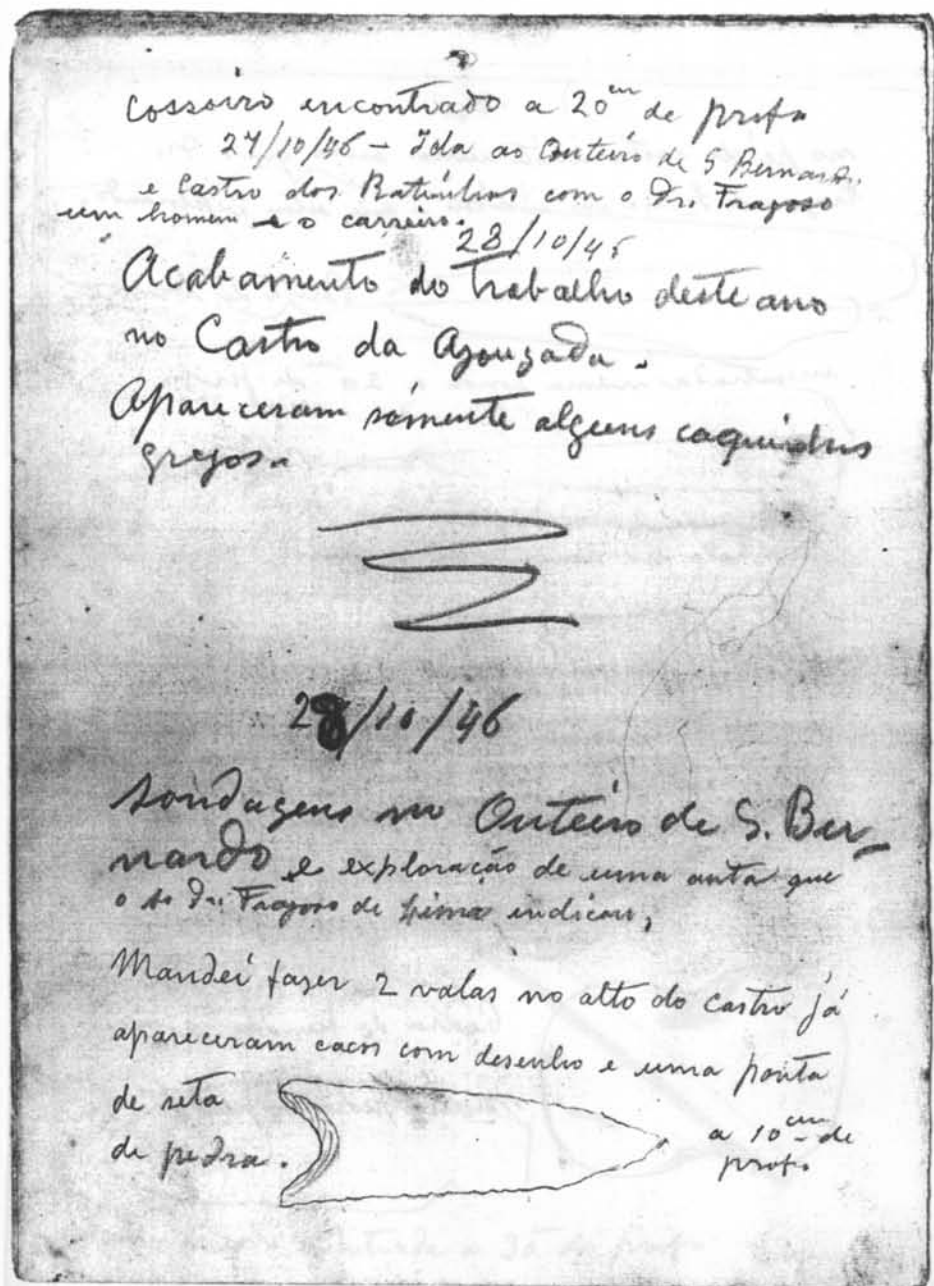 Cossoiro encontrado a 20 cm de profa
27/10/46 – Ida ao Outeiro de S. Bernardo.
e Castro dos Ratinhos com o Dr. Fragoso
um homem e o carreiro.
28/10/46
Acabamento do trabalho deste ano
no Castro da Azougada.
Apareceram sómente alguns caquinhos
gregos.
28/10/46
Sondagens no Outeiro de S. Ber-
nardo e exploração de uma anta que
o Sr Dr. Fragoso de Lima indicou,
Mandei fazer 2 valas no alto do castro já
apareceram cacos com desenho e uma ponta
de seta
de pedra.
a 10 cm de
prof.